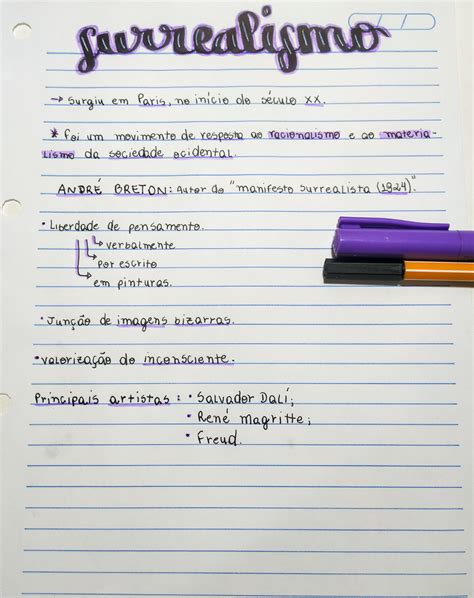 surrealismo
→ Surgiu em Paris, no início do século XX.
* Foi um movimento de resposta ao racionalismo e ao materia-
lismo da sociedade ocidental.
ANDRÉ BRETON: Autor do "manifesto Surrealista (1924)."
• Liberdade de pensamento.
↳ verbalmente
↳ Por escrito
↳ em pinturas.
• Junção de imagens bizarras.
• valorização do inconsciente.
Principais artistas : • Salvador Dalí;
• René Magritte;
• Freud.